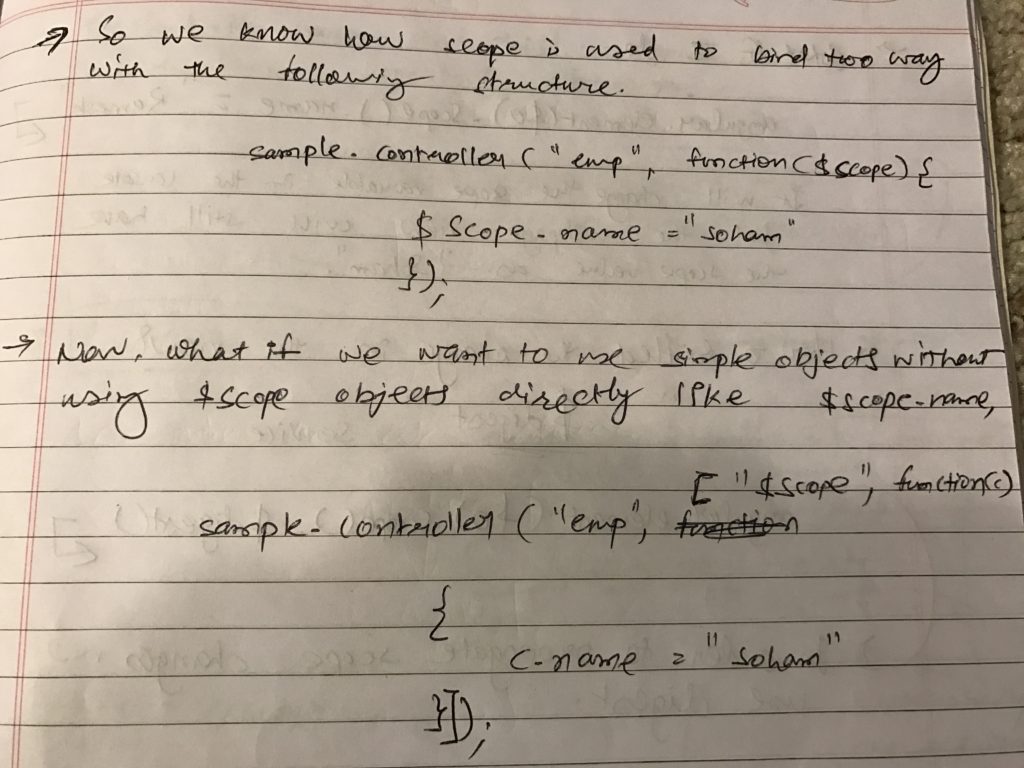 → So we know how scope is used to bind two way
with the following structure.
sample. controller ("emp", function($scope) {
$ Scope. name = "soham"
});
→ Now, what if we want to use simple objects without
using $scope objects directly like $scope.name,
["$scope", function(c)
sample. controller ("emp", function
{
c.name = "soham"
}]);